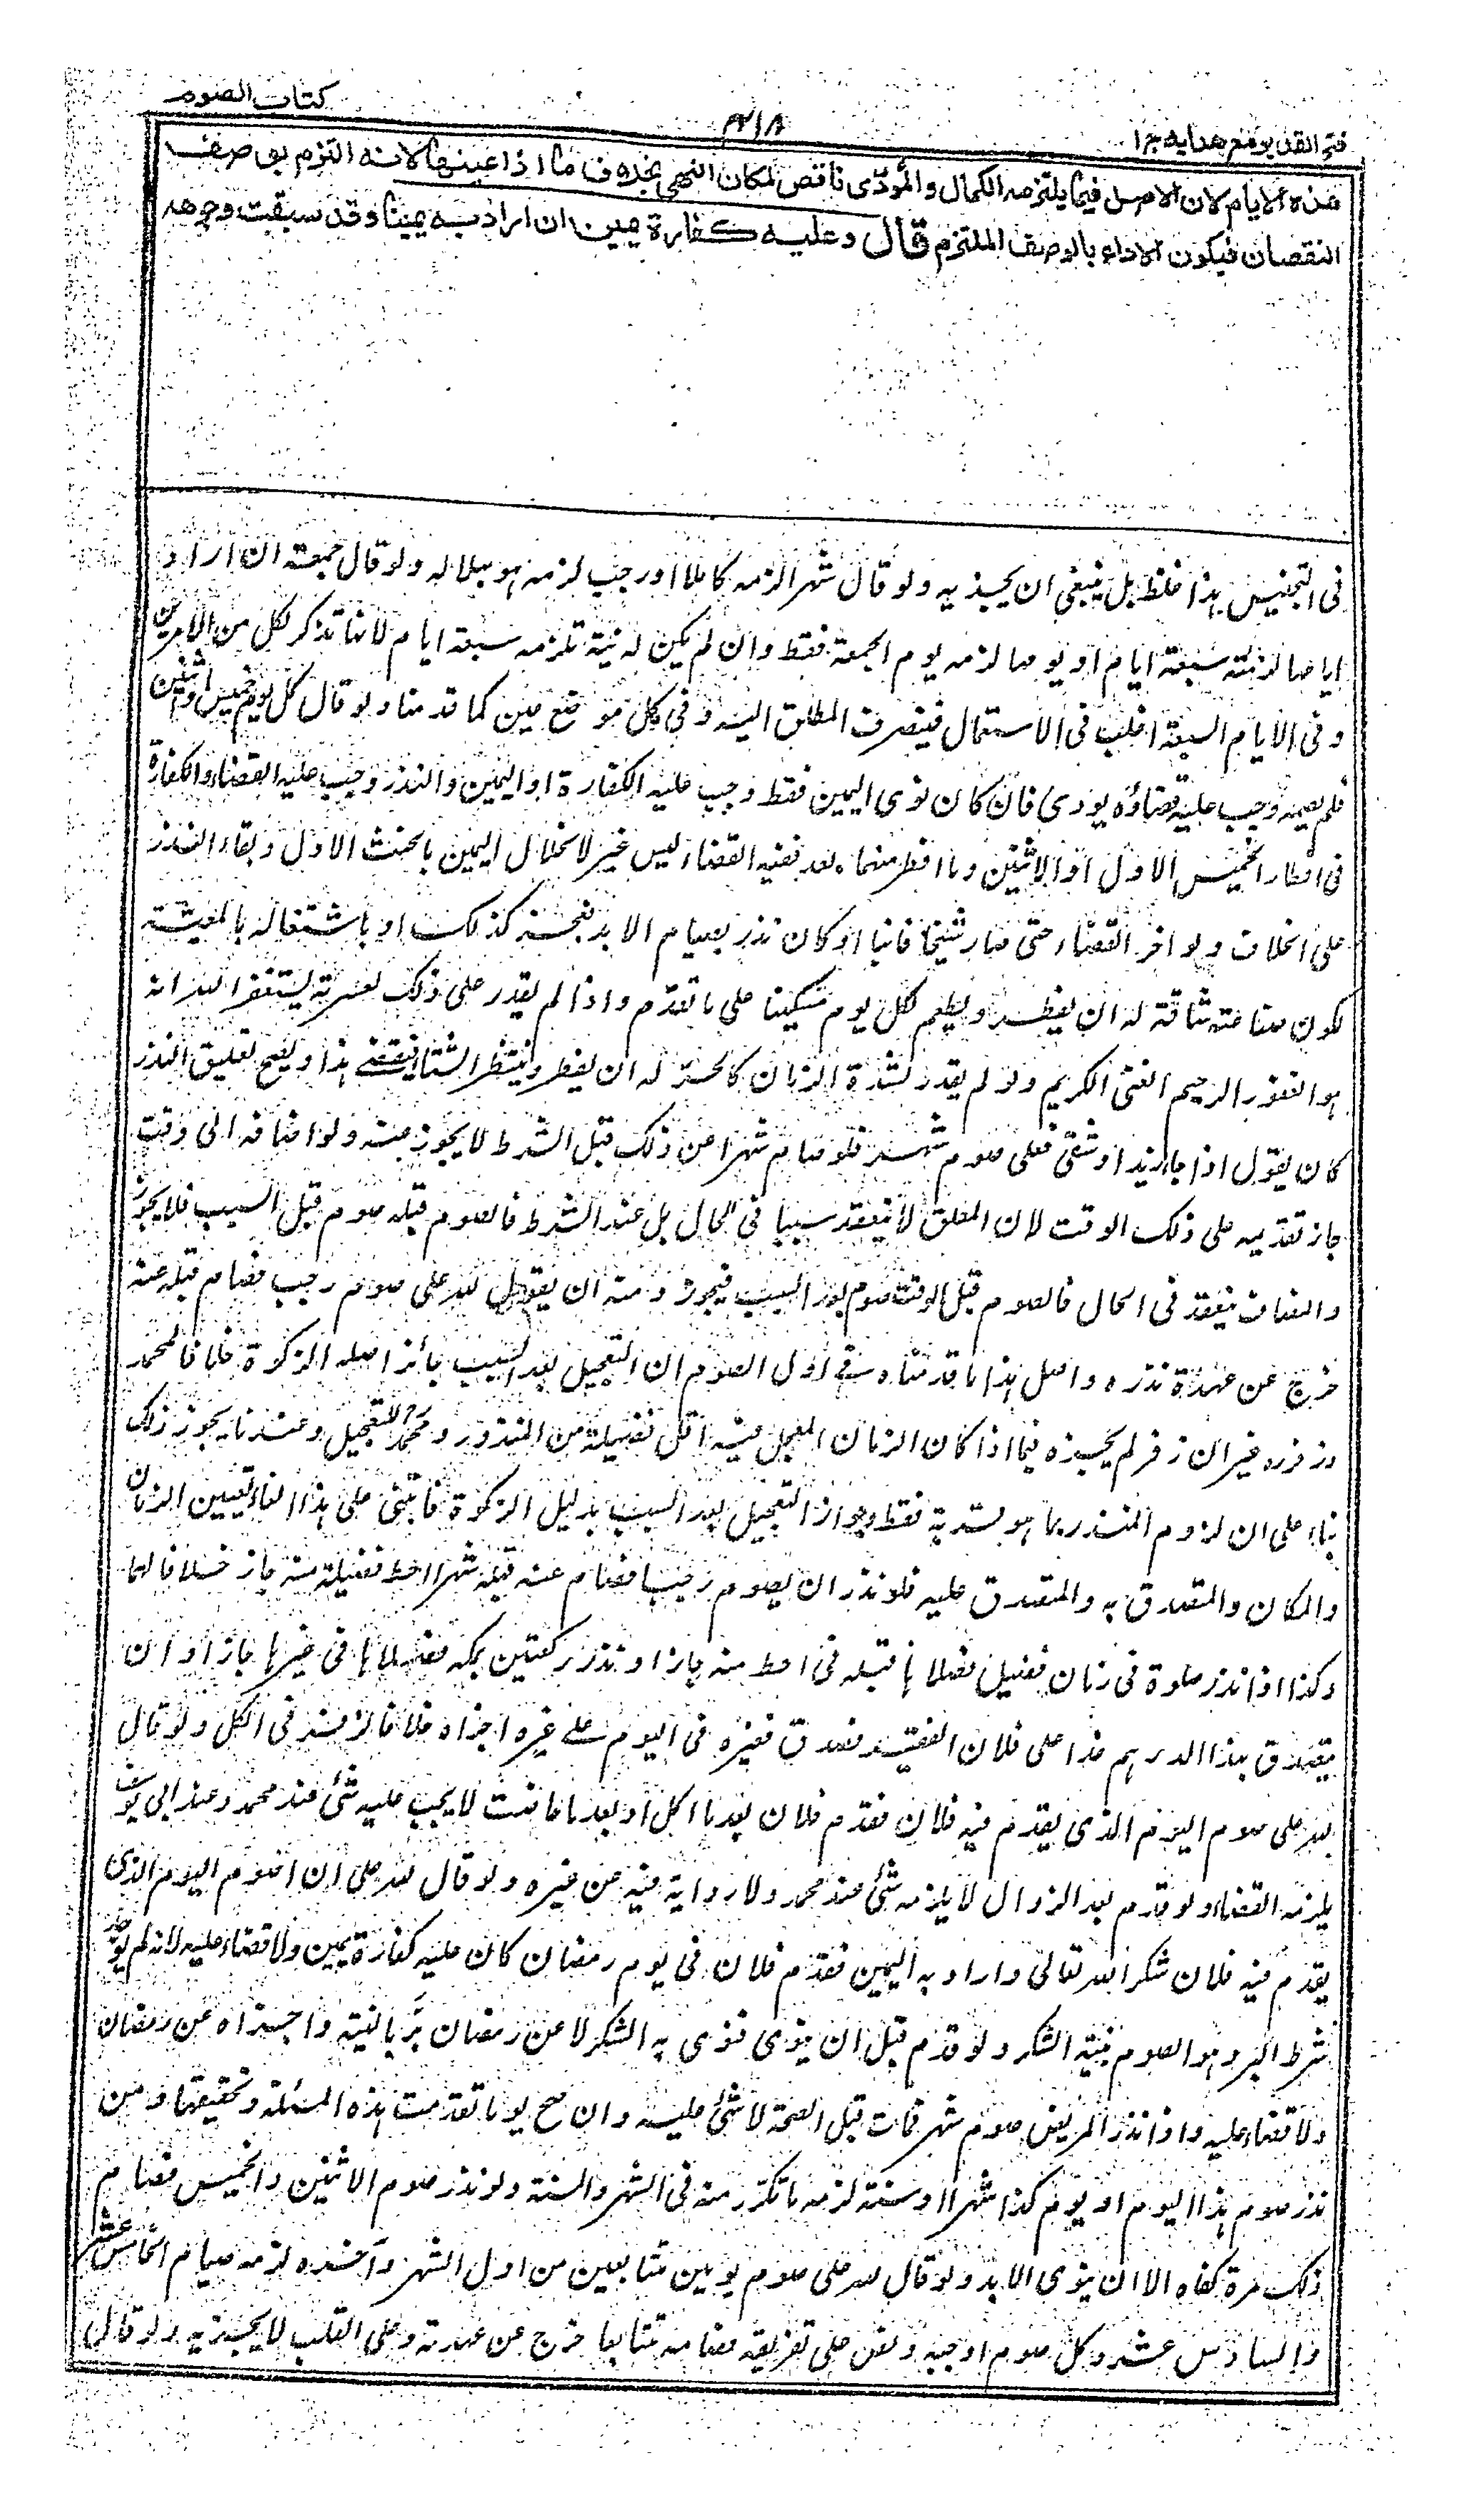 فتح القدير مع هدايه ج ١
٣١٨
كتاب الصوم
هذه الايام لان الاصل فيما يلتزمه الكمال والمؤدّى ناقص لمكان النهى بخلاف ما اذا عينها لانه التزم بوصف
النقصان فيكون الاداء بالوصف الملتزم قال وعليه كفارة يمين ان اراد به يمينا وقد سبقت وجوهه
فى التجنيس هذا غلط بل ينبغى ان يجزيه ولو قال شهرا لزمه كاملا او رجب لزمه هو بهلاله ولو قال جمعة ان اراد
اياما لزمته سبعة ايام او يوما لزمه يوم الجمعة فقط وان لم يكن له نية تلزمه سبعة ايام لانها تذكر لكل من الامرين
وفى الايام السبعة اغلب فى الاستعمال فينصرف المطلق اليه وفى كل موضع عين كما قدمنا ولو قال كل يوم خميس او اثنين
فلم يصمه وجب عليه قضاؤه يودى فان كان نوى اليمين فقط وجب عليه الكفارة او اليمين والنذر وجب عليه القضاء والكفارة
فى افطار الخميس الاول او الاثنين وما افطر منهما بعد ففيه القضاء ليس غير لانحلال اليمين بالحنث الاول وبقاء النذر
على الخلاف ولو اخر القضاء حتى صار شيخا فانيا او كان نذر بصيام الابد فعجز كذلك او باشتغاله بالمعيشة
لكون صناعته شاقة له ان يفطر ويطعم لكل يوم مسكينا على ما تقدم واذا لم يقدر على ذلك لعسرته يستغفر الله انه
هو الغفور الرحيم الغنى الكريم ولو لم يقدر لشدة الزمان كالحر له ان يفطر وينتظر الشتاء فيقضى هذا ويصح تعليق النذر
كان يقول اذا جاء زيد او شفى فعلى صوم شهر فلو صام شهرا عن ذلك قبل الشرط لا يجوز عنه ولو اضافه الى وقت
جاز تقديمه على ذلك الوقت لان المعلق لا ينعقد سببا فى الحال بل عند الشرط فالصوم قبله صوم قبل السبب فلا يجوز
والمضاف ينعقد فى الحال فالصوم قبل الوقت صوم بعد السبب فيجوز ومنه ان يقول لله على صوم رجب فصام قبله عنه
خرج عن عهدة نذره واصل هذا ما قدمناه فى اول الصوم ان التعجيل بعد السبب جائز اصله الزكوة خلافا لمحمد
وزفر ره غير ان زفر لم يجزه فيما اذا كان الزمان المعجل فيه اقل فضيلة من المنذور ومحمد رح للتعجيل وعندنا يجوز ذلك
بناء على ان لزوم المنذر بما هو به قربة فقط وجواز التعجيل بعد السبب بدليل الزكوة فابتنى على هذا الغاء تعيين الزمان
والمكان والمتصدق به والمتصدق عليه فلو نذر ان يصوم رجبا فصام عنه قبله شهرا احط فضيلة منه جاز خلافا لهما
وكذا اذا نذر صلوة فى زمان فضيل فصلاها قبله فى احط منه جاز او نذر ركعتين بمكة فصلاها فى غيرها جاز او ان
يتصدق بهذا الدرهم غدا على فلان الفقير فصدق فغيره فى اليوم على غيره اجزاه خلافا لزفر فى الكل ولو قال
لله على صوم اليوم الذى يقدم فيه فلان فقدم فلان بعد ما اكل او بعد ما حاضت لا يجب عليه شئ عند محمد وعند ابى يوسف
يلزمه القضاء ولو قدم بعد الزوال لا يلزمه شئ عند محمد ولا رواية فيه عن غيره ولو قال لله على ان اصوم اليوم الذى
يقدم فيه فلان شكرا لله تعالى واراد به اليمين فقدم فلان فى يوم رمضان كان عليه كفارة يمين ولا قضاء عليه لانه لم يوجد
شرط البر وهو الصوم بنية الشكر ولو قدم قبل ان ينوى فنوى به الشكر لا عن رمضان بر بالنية واجزاه عن رمضان
ولا قضاء عليه واذا نذر المريض صوم شهر فمات قبل الصحة لا شئ عليه وان صح يوما تقدمت هذه المسئلة وتحقيقها ومن
نذر صوم هذا اليوم او يوم كذا شهرا او سنة لزمه ما تكرر منه فى الشهر والسنة ولو نذر صوم الاثنين والخميس فصام
ذلك مرة كفاه الا ان ينوى الابد ولو قال لله على صوم يومين متتابعين من اول الشهر وآخره لزمه صيام الخامس عشر
والسادس عشر وكل صوم اوجبه ونص على تفريقه فصامه متتابعا خرج عن عهدته وعلى القلب لا يجزيه ولو قال